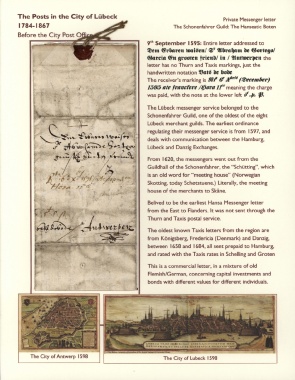 The Posts in the City of Lübeck
1784-1867
Before the City Post Office
Private Messenger letter
The Schonenfahrer Guild: The Hanseatic Boten
9th September 1595: Entire letter addressed to
Dem Erbaren
Abraham de
Garcia En groeten friend/ in / Antwerpen the
letter has no Thurn and Taxis markings, just the
handwritten notation
The receiver's marking is
1595 meaning the charge
was paid, with the note at the lower left
The Lübeck messenger service belonged to the
Schonenfahrer Guild, one of the oldest of the eight
Lübeck merchant guilds. The earliest ordinance
regulating their messenger service is from 1597, and
deals with communication between the Hamburg,
Lübeck and Danzig Exchanges.
From 1620, the messengers went out from the
Guildhall of the Schonenfahrer, the "Schütting", which
is an old word for "meeting house" (Norwegian
Skotting, today Schotstuene.) Literally, the meeting
house of the merchants to Skåne.
Belived to be the earliest Hansa Messenger letter
from the East to Flanders. It was not sent through the
Thurn and Taxis postal service.
The oldest known Taxis letters from the region are
from Königsberg, Fredericia (Denmark) and Danzig,
between 1658 and 1684, all sent prepaid to Hamburg,
and rated with the Taxis rates in Schelling and Groten
This is a commercial letter, in a mixture of old
Flemish/German, concerning capital investments and
bonds with different values for different individuals.
Antwerpen
The City of Antwerp 1598
The City of Lübeck 1598